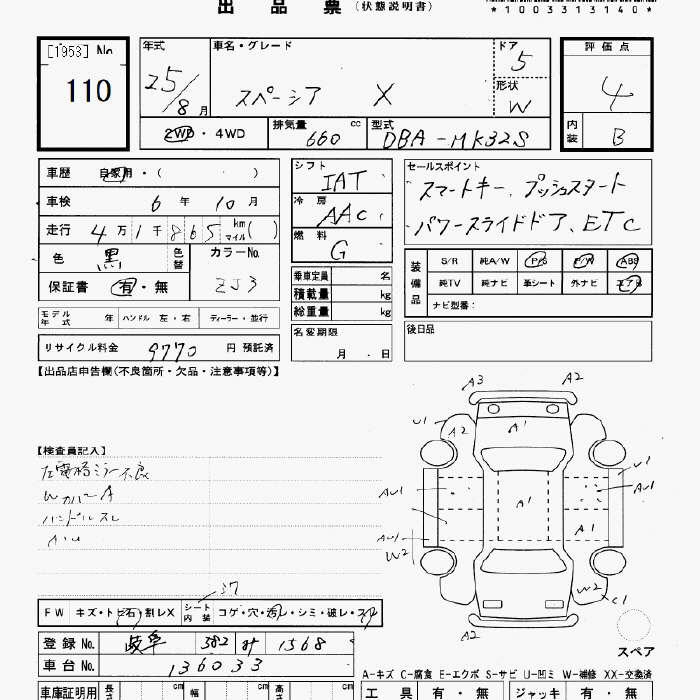 出品票 (状態説明書)
*1003313140*
[1953] No 110
年式 25/8月
車名・グレード スペーシア X
ドア 5
形状 W
評価点 4
内装 B
2WD・4WD
排気量 660 cc
型式 DBA-MK32S
車歴 自家用・( )
車検 6年 10月
走行 4万1千865 km マイル( )
色 黒 色替 カラーNo. ZJ3
保証書 有・無
シフト IAT
冷房 AAC
燃料 G
乗車定員 名
積載量 kg
総重量 kg
セールスポイント
スマートキー、プッシュスタート
パワースライドドア、ETC
装備品 S/R 純A/W P/S P/W ABS
純TV 純ナビ 革シート 外ナビ エアB
ナビ型番:
モデル年式 年 ハンドル 左・右 ディーラー・並行
名変期限 月・日
後日品
リサイクル料金 9770 円 預託済
【出品店申告欄(不良箇所・欠品・注意事項等)】
A3 A2
U1 A2 A1
【検査員記入】
左電格ミラー不良
WカバーA
ハンドルスレ
AU1 A1 U1 AU1
A1
AU1 W2
W2 C1
A2
スペア
37
FW キズ・トビ石・割レX シート内装 コゲ・穴・汚レ・シミ・破レ・スレ
登録No. 岐阜 582 1568
車台No. 136033
A-キズ C-腐食 E-エクボ S-サビ U-凹ミ W-補修 XX-交換済
車庫証明用 長さ cm 幅 cm 高さ cm
工具 有・無 ジャッキ 有・無